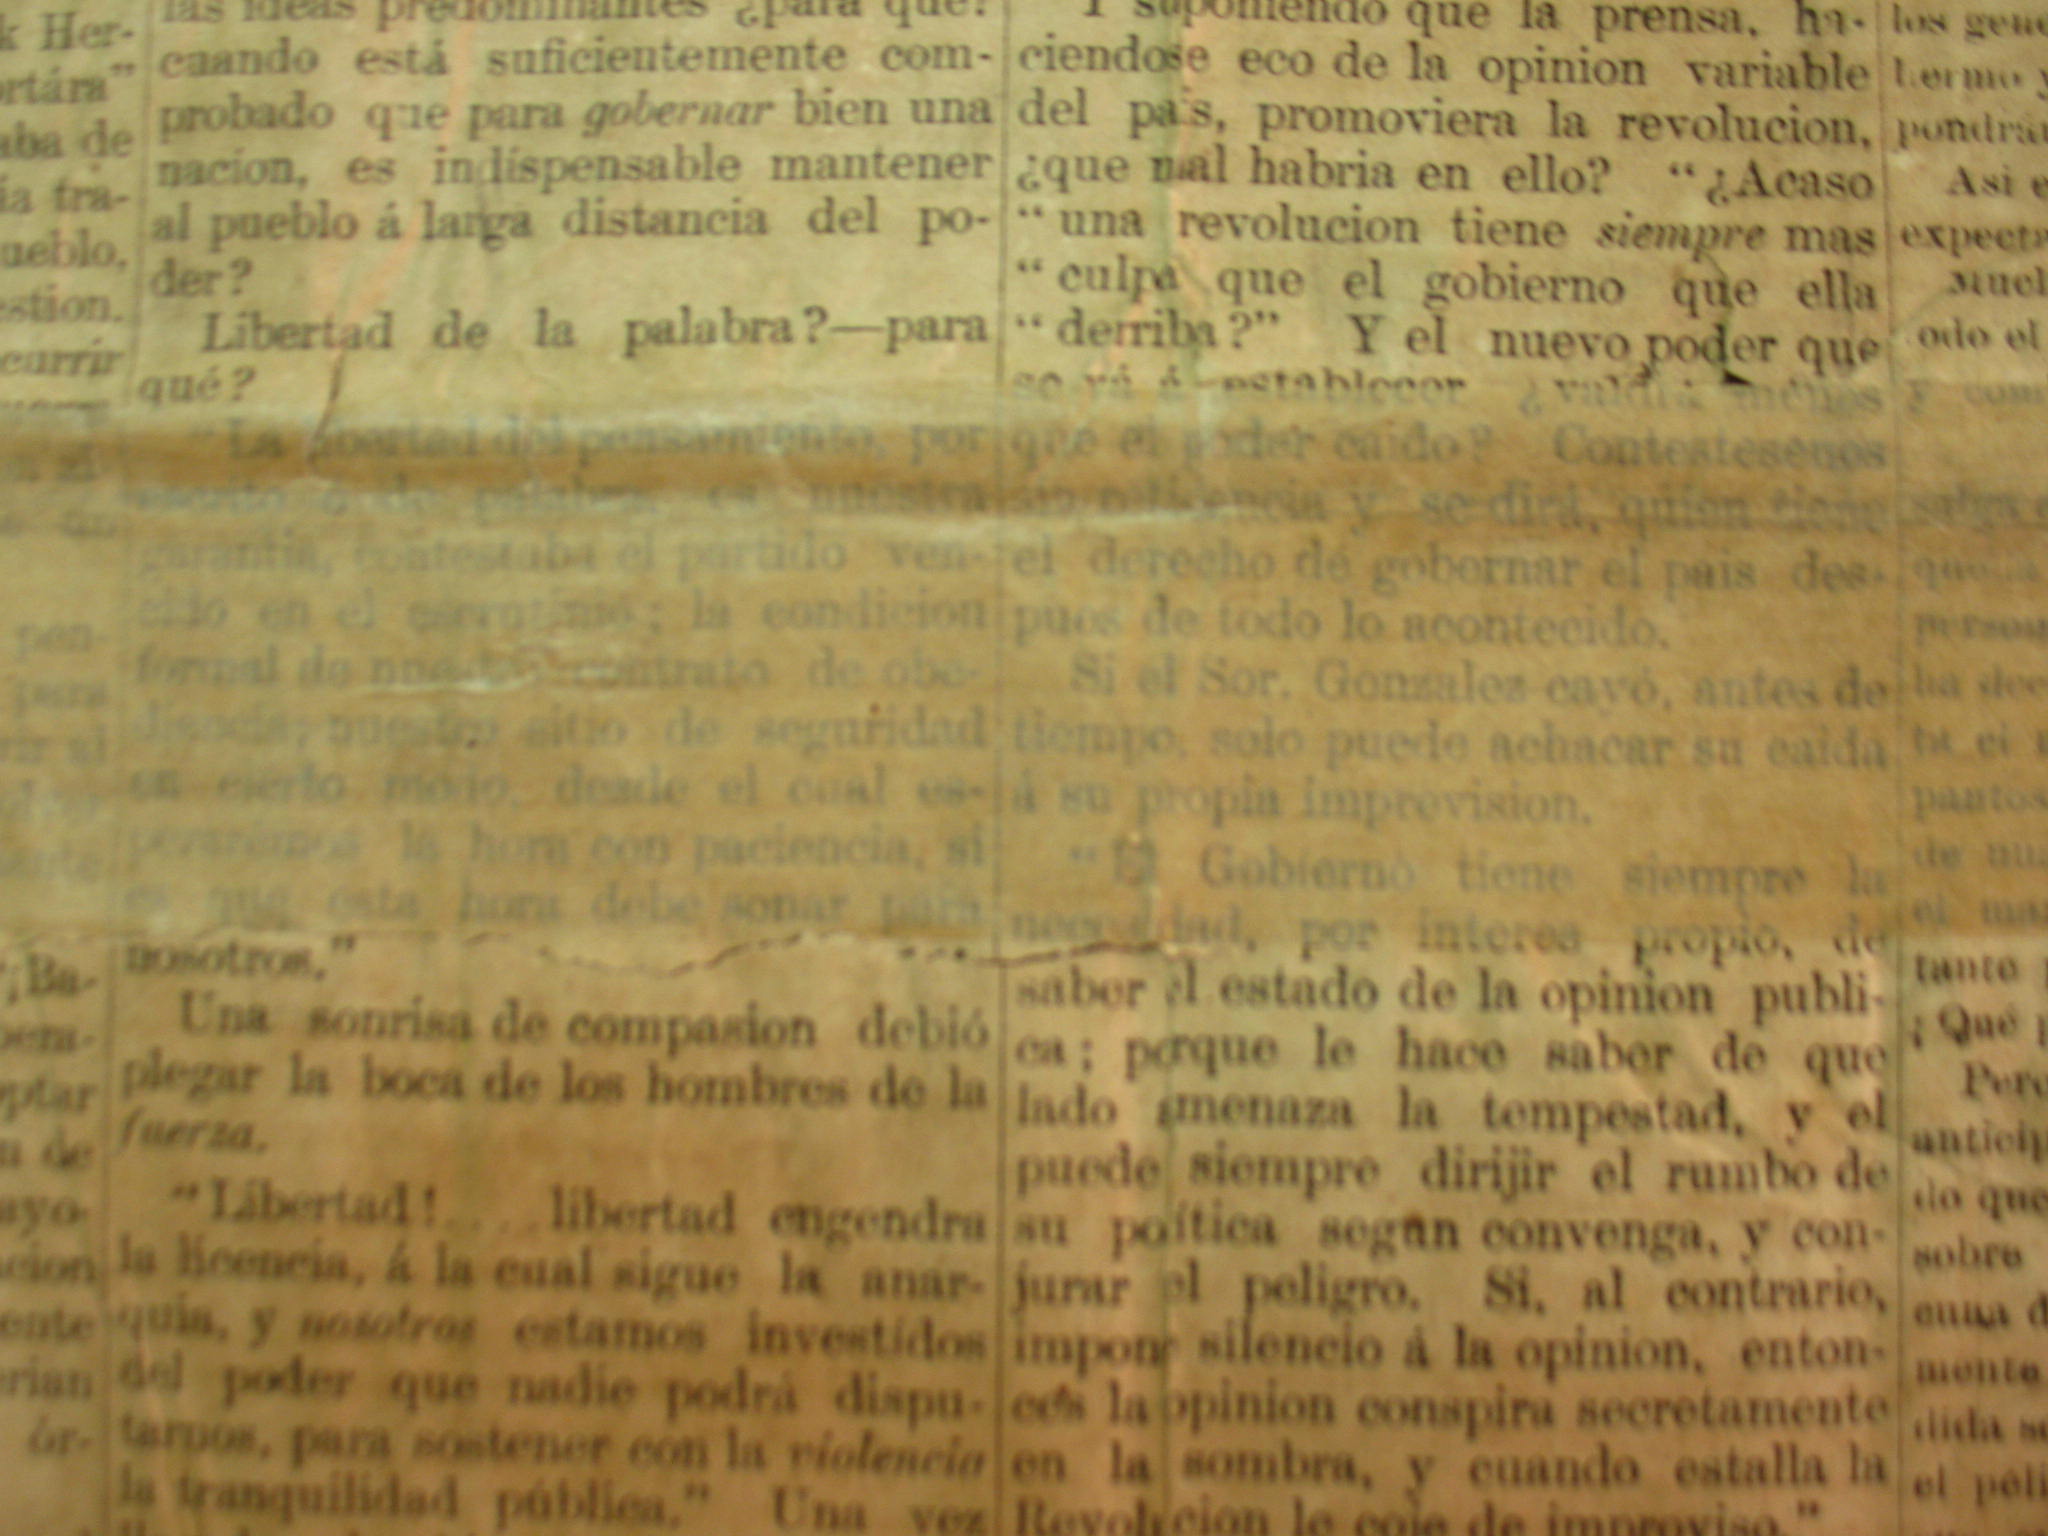 k Her-
ortára"
aba de
ia tra-
ueblo,
estion.
currir
pen-
para
rir al
"¡Ba-
pera-
eptar
n de
ayo-
acion
ente
erian
ór-
las ideas predominantes ¿para qué?
cuando está suficientemente com-
probado que para gobernar bien una
nacion, es indispensable mantener
al pueblo á larga distancia del po-
der?
Libertad de la palabra?—para
qué?
"La libertad del pensamiento, por
escrito ó de palabra, es nuestra
garantía, contestaba el partido ven-
cido en el escrutinio; la condicion
formal de nuestro contrato de obe-
diencia; nuestro sitio de seguridad
en cierto modo, desde el cual es-
peraremos la hora con paciencia, si
es que esta hora debe sonar para
nosotros."
Una sonrisa de compasion debió
plegar la boca de los hombres de la
fuerza.
"Libertad!.... libertad engendra
la licencia, á la cual sigue la anar-
quia, y nosotros estamos investidos
del poder que nadie podrá dispu-
tarnos, para sostener con la violencia
la tranquilidad pública." Una vez
Y suponiendo que la prensa, ha-
ciendose eco de la opinion variable
del pais, promoviera la revolucion,
¿que mal habria en ello? "¿Acaso
"una revolucion tiene siempre mas
"culpa que el gobierno que ella
"derriba?" Y el nuevo poder que
se vá á establecer ¿valdrá ménos
que el poder caido? Contestesenos
y se dirá, quien tiene
el derecho de gobernar el pais des-
pues de todo lo acontecido.
Si el Sor. Gonzalez cayó, antes de
tiempo, solo puede achacar su caida
á su propia imprevision.
"El Gobierno tiene siempre la
necesidad, por interes propio, de
saber el estado de la opinion publi-
ca; porque le hace saber de que
lado amenaza la tempestad, y el
puede siempre dirijir el rumbo de
su política segun convenga, y con-
jurar el peligro. Si, al contrario,
impone silencio á la opinion, enton-
ces la opinion conspira secretamente
en la sombra, y cuando estalla la
Revolucion le coje de improviso."
los gene
pondrán
Asi e
expecta
Mucl
odo el
y com
salga e
person
ha dec
pantos
de nu
el ma
tanto
¡Qué
Pero
anticip
do que
sobre
cuna d
mente
dida s
el peli